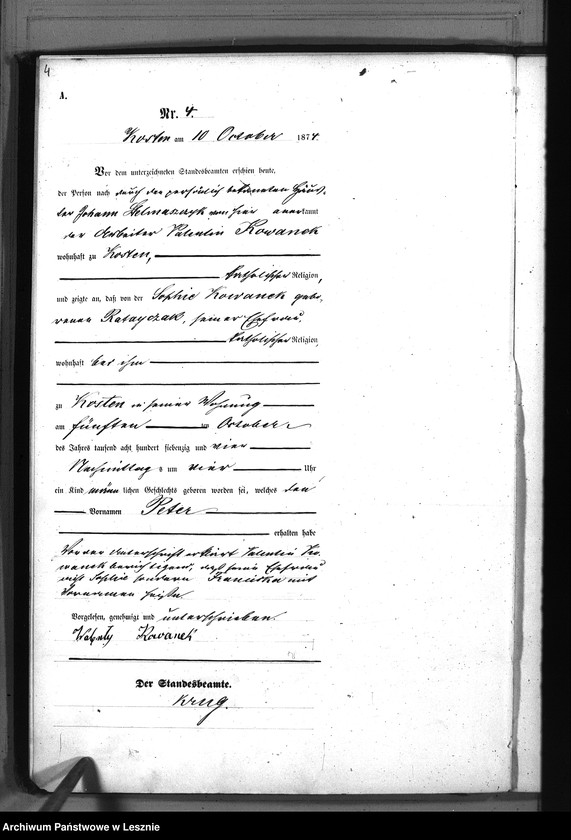 4
A.
Nr. 4.
Kosten am 10 October 1874.
Vor dem unterzeichneten Standesbeamten erschien heute,
der Person nach durch den persönlich bekannten Häus-
ler Johann von hier anerkannt
der Arbeiter Valentin Kowanek
wohnhaft zu Kosten,
katholischer Religion,
und zeigte an, daß von der Sophie Kowanek gebo-
renen Ratayczak, seiner Ehefrau,
katholischer Religion
wohnhaft bei ihm
zu Kosten in seiner Wohnung
am fünften im October
des Jahres tausend acht hundert siebenzig und vier
Nachmittag s um vier Uhr
ein Kind männlichen Geschlechts geboren worden sei, welches den
Vornamen Peter
erhalten habe
Vor der Unterschrift erklärt Valentin Ko-
wanek berichtigend, daß seine Ehefrau
nicht Sophie sondern Franciska mit
Vornamen heiße.
Vorgelesen, genehmigt und unterschrieben.
Kowanek
Der Standesbeamte.
Krug.
Archiwum Państwowe w Lesznie